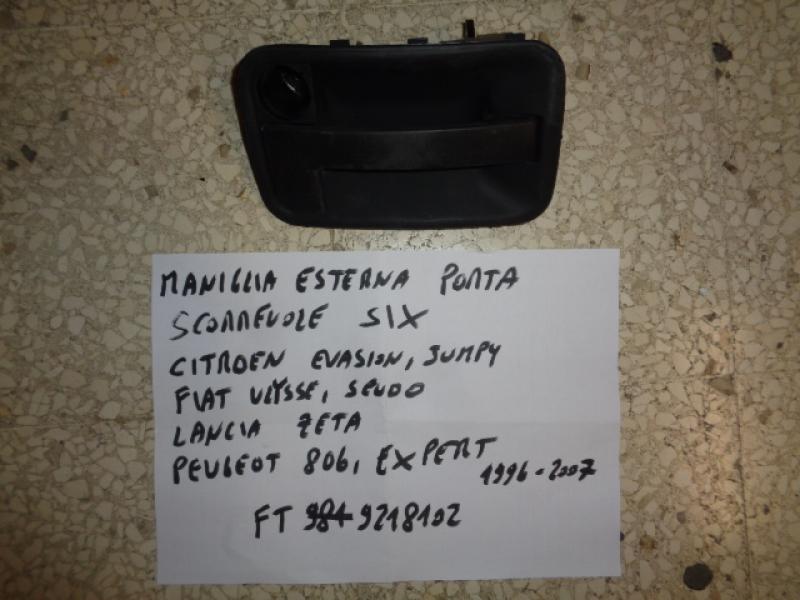 MANIGLIA ESTERNA PORTA
SCORREVOLE SIX
CITROEN EVASION, JUMPY
FIAT ULYSSE, SCUDO
LANCIA ZETA
PEUGEOT 806, EXPERT
1996-2007
FT 981 9218102